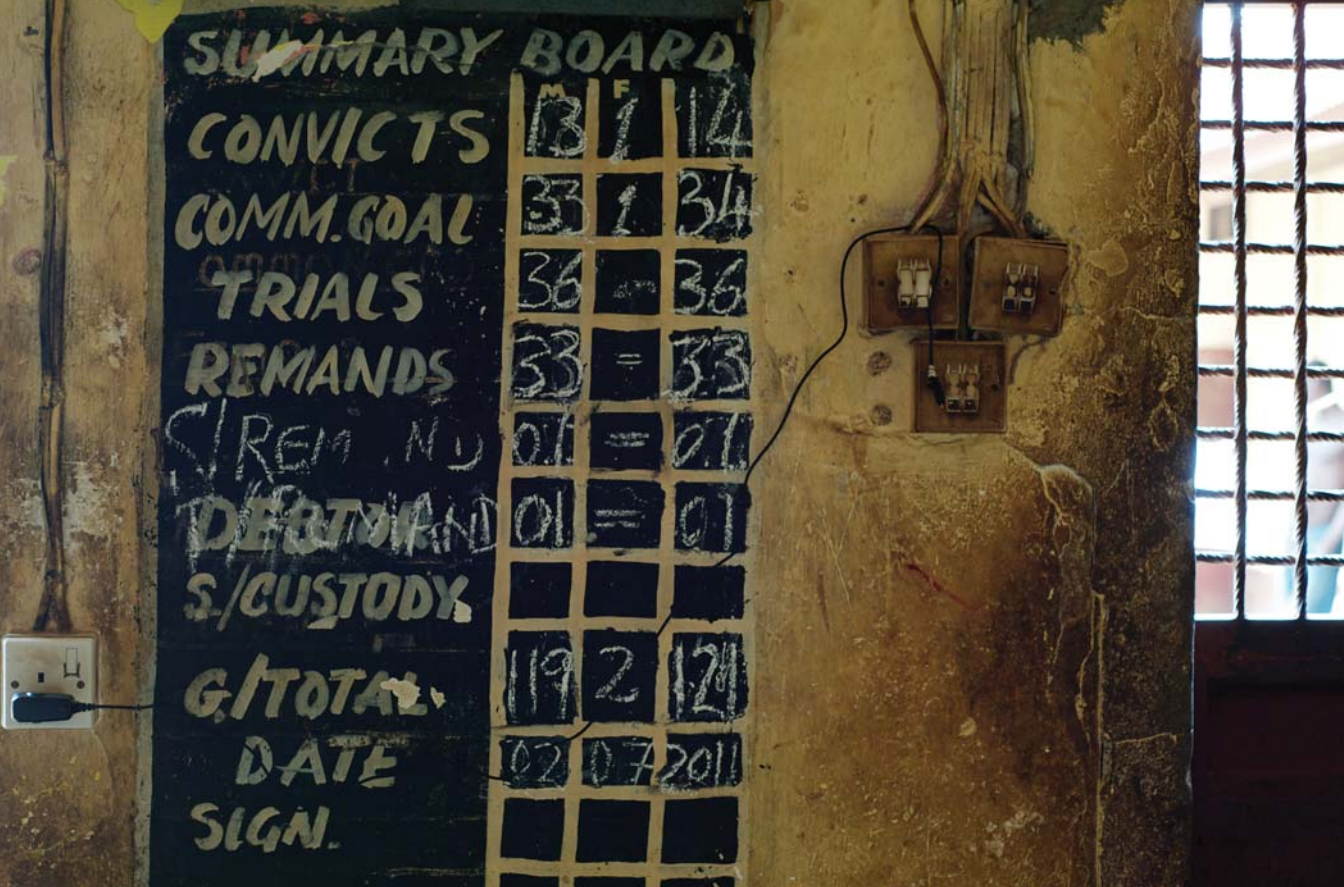 SUMMARY BOARD
M F
CONVICTS 13 1 14
COMM. GOAL 33 1 34
TRIALS 36 - 36
REMANDS 33 = 33
S/REM. 01 = 01
01 = 01
S/CUSTODY
G/TOTAL 119 2 121
DATE 02 07 2011
SIGN.